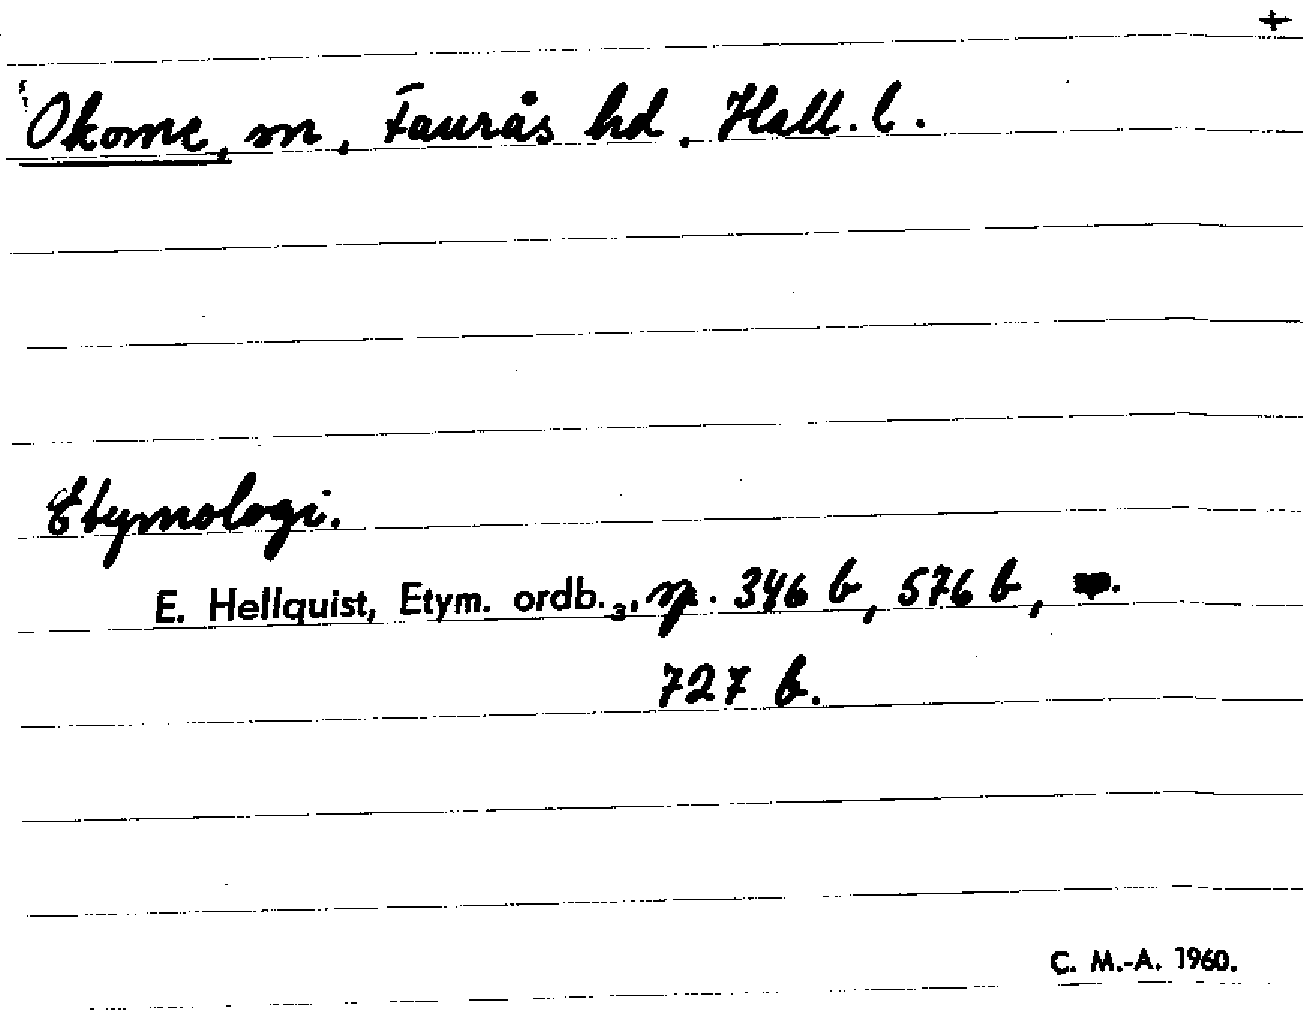 +
Okome, sn, Faurås hd, Hall. l.
Etymologi.
E. Hellquist, Etym. ordb.₃, sp. 346 b, 576 b,
727 b.
C. M.-A. 1960.